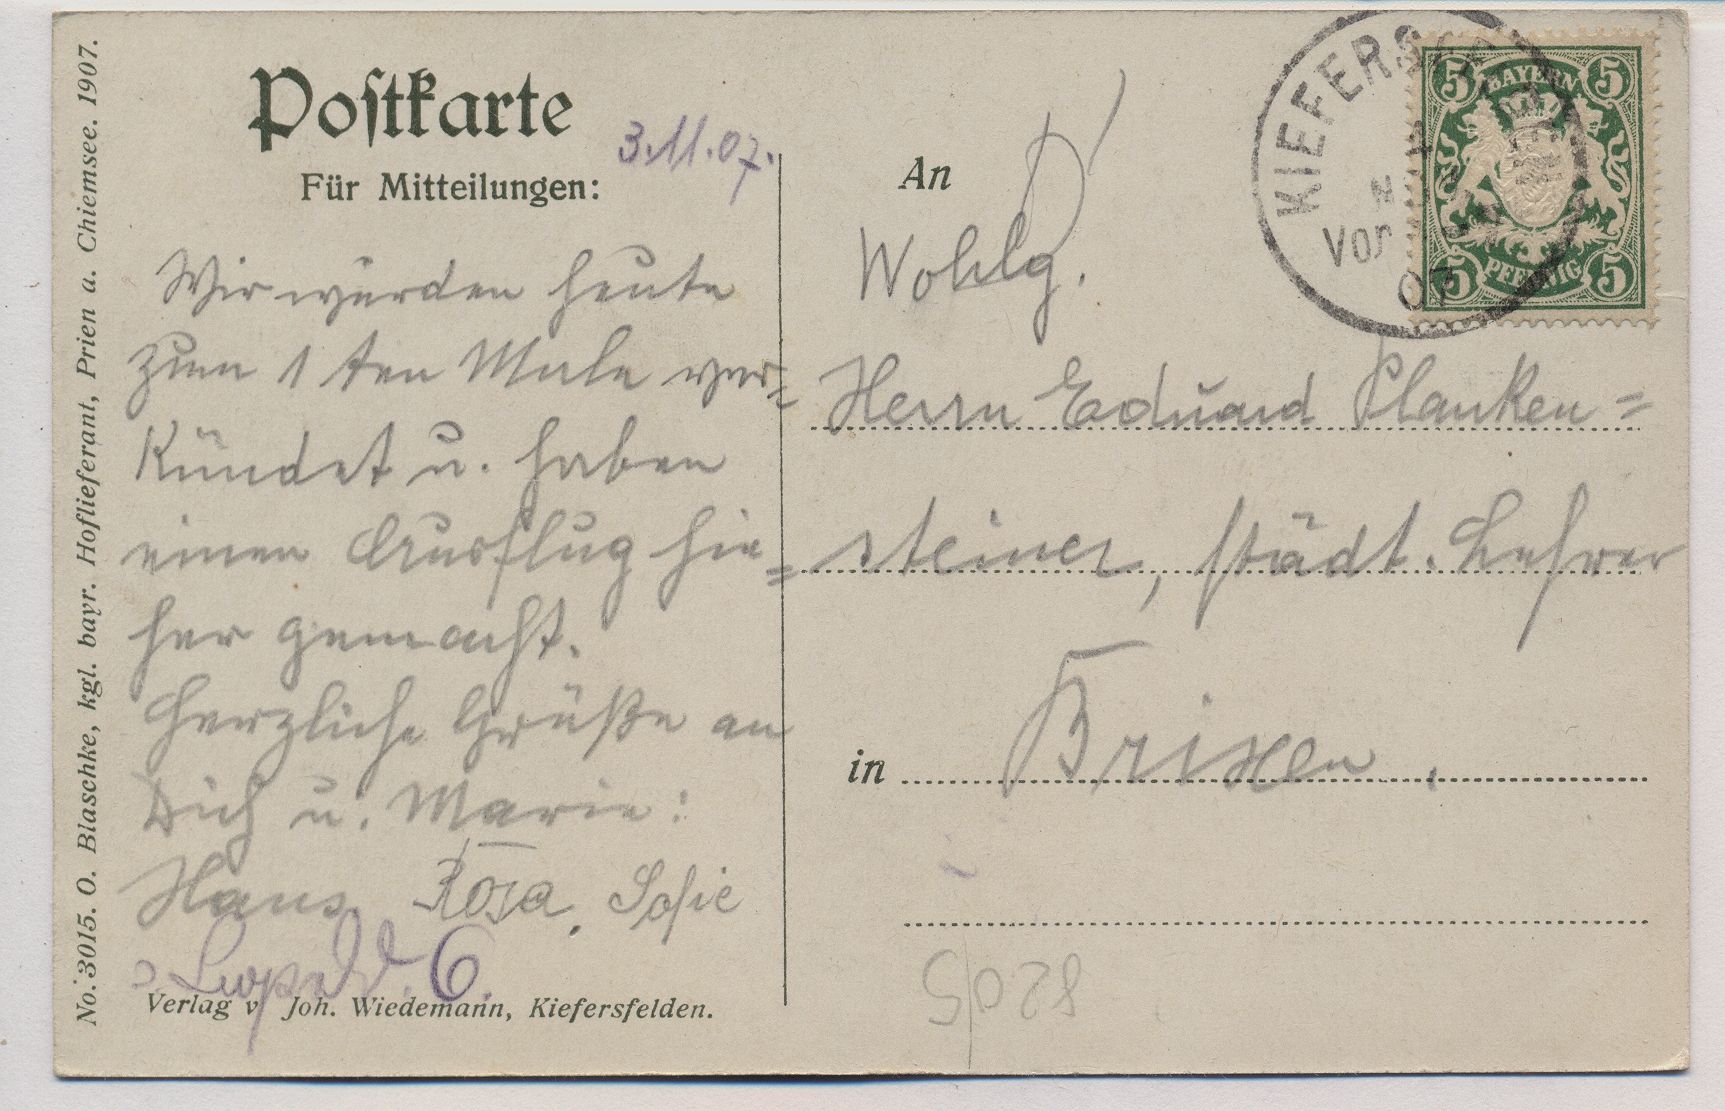 No. 3015. O. Blaschke, kgl. bayr. Hoflieferant, Prien a. Chiemsee. 1907.
Postkarte
3.11.07.
Für Mitteilungen:
Wir wurden heute
zum 1 ten Male ver=
kündet u. haben
einen Ausflug hie=
her gemacht.
Herzliche Grüße an
Dich u. Marie:
Hans Rosa, Sofie
Leopold. 6.
Verlag v. Joh. Wiedemann, Kiefersfelden.
An
Wohlg.
Herrn Eduard Planken=
steiner, städt. Lehrer
in Brixen.
8205
KIEFERS
Vor
07
5 BAYERN 5
5 PFENNIG 5